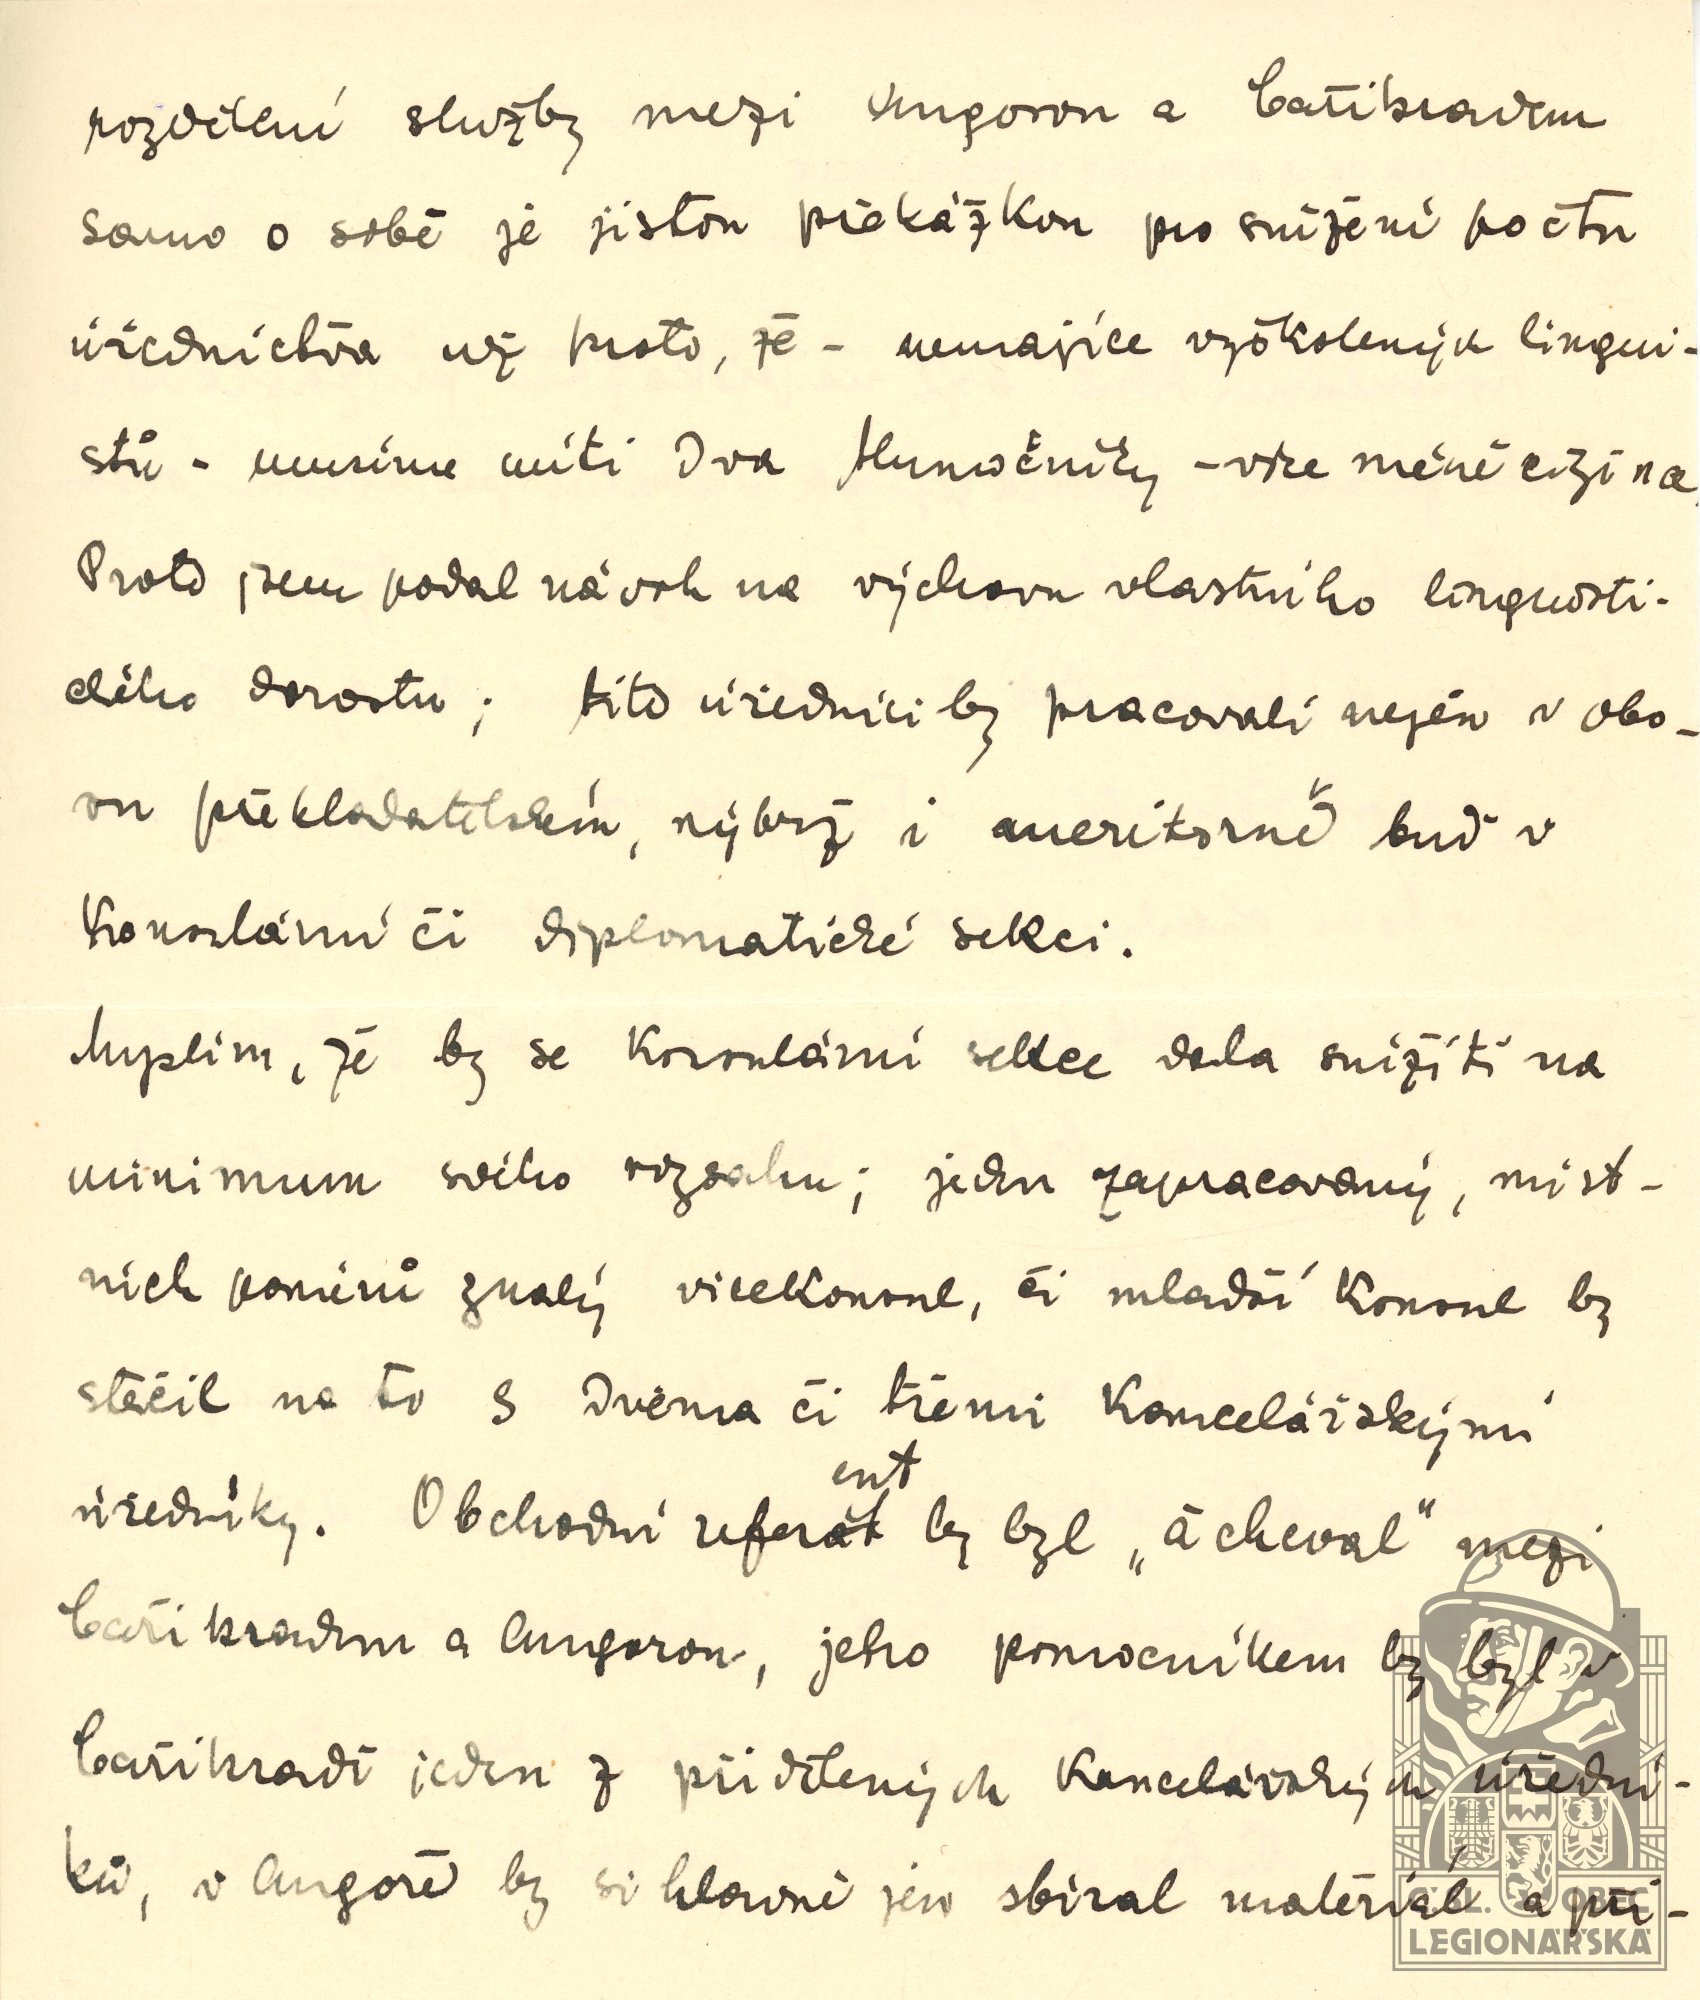 rozdělení služby mezi Angorou a Cařihradem
samo o sobě je jistou překážkou pro snížení počtu
úřednictva už proto, že - nemajíce vyškolených lingui-
stů - musíme míti dva tlumočníky - více méně cizince.
Proto jsem podal návrh na výchovu vlastního linguisti-
ckého dorostu; tito úředníci by pracovali nejen v obo-
ru překladatelském, nýbrž i meritorně buď v
konsulární či diplomatické sekci.
Myslím, že by se konsulární sekce dala snížiti na
minimum svého rozsahu; jeden zapracovaný, míst-
ních poměrů znalý vicekonsul, či mladší konsul by
stačil na to s dvěma či třemi kancelářskými
úředníky. Obchodní referent by byl „à cheval" mezi
Cařihradem a Angorou, jeho pomocníkem by byl v
Cařihradě jeden z přidělených kancelářských úřední-
ků, v Angoře by si hlavně jen sbíral materiál a při-
ČS. OBEC
LEGIONÁŘSKÁ